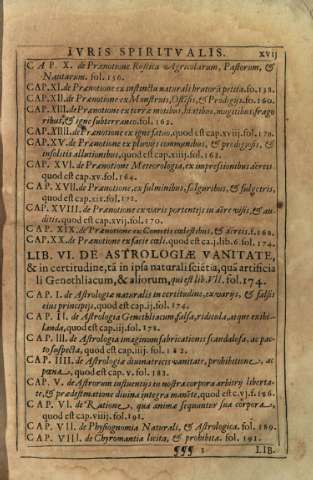 IVRIS SPIRITVALIS. xvij
CAP. X. de Prænotione Rustica Agricolarum, Pastorum, &
Nautarum. fol. 156.
CAP. XI. de Prænotione ex instinctu naturali brutorū petita. fo. 158.
CAP. XII. de Prænotione ex Monstris, Ostesis, & Prodigijs. fo. 160.
CAP. XIII. de Prænotione ex terræ motibus, hiatibus, mugitibus, frago
ribus, & igne subterraneo. fol. 162.
CAP. XIIII. de Prænotione ex igne fatuo, quod est cap. xvij. fol. 170.
CAP. XV. de Prænotione ex pluvijs communibus, & prodigiosis, &
insolitis allationibus, quod est cap. xiij. fol. 168.
CAP. XVI. de Prænotione Meteorologia, ex impressionibus aëreis
quod est cap. xv. fol. 164.
CAP. XVII. de Prænotione, ex fulminibus, fulguribus, & fulgetris,
quod est cap. xix. fol. 172.
CAP. XVIII. de Prænotione ex varijs portentis in aëre visis, & au-
ditis, quod est cap. xvij. fol. 170.
CAP. XIX. de Prænotione ex Cometis cælestibus, & aëreis. f. 168.
CAP. XX. de Prænotione ex facie cæli. quod est ca. j. lib. 6. fol. 174.
LIB. VI. DE ASTROLOGIÆ VANITATE,
& in certitudine, tā in ipsa naturali sciētia, quā artificia
li Genethliacum, & aliorum, qui est lib. VII. fol. 174.
CAP. I. de Astrologia naturalis in certitudine, ex varijs, & falsis
eius principijs, quod est cap. ij. fol. 174.
CAP. II. de Astrologia Genethliacum falsa, ridicula, atque exibe-
landa, quod est cap. iij. fol. 178.
CAP. III. de Astrologia imaginum fabricationis scandalosa, ac pac-
to suspecta, quod est cap. iiij. fol. 182.
CAP. IIII. de Astrologia divinatricis vanitate, prohibitione, ac
pœna, quod est cap. v. fol. 183.
CAP. V. de Astrorum influentijs in nostra corpora arbitrij liberta-
te, & prædestinatione divina integra manēte, quod est c. vj. f. 186.
CAP. VI. de Ratione, qua animæ sequuntur sua corpora,
quod est cap. viiij. fol. 191.
CAP. VII. de Physiognomia Naturali, & Astrologica. fol. 189.
CAP. VIII. de Chyromantia licita, & prohibita. fol. 191.
LIB.